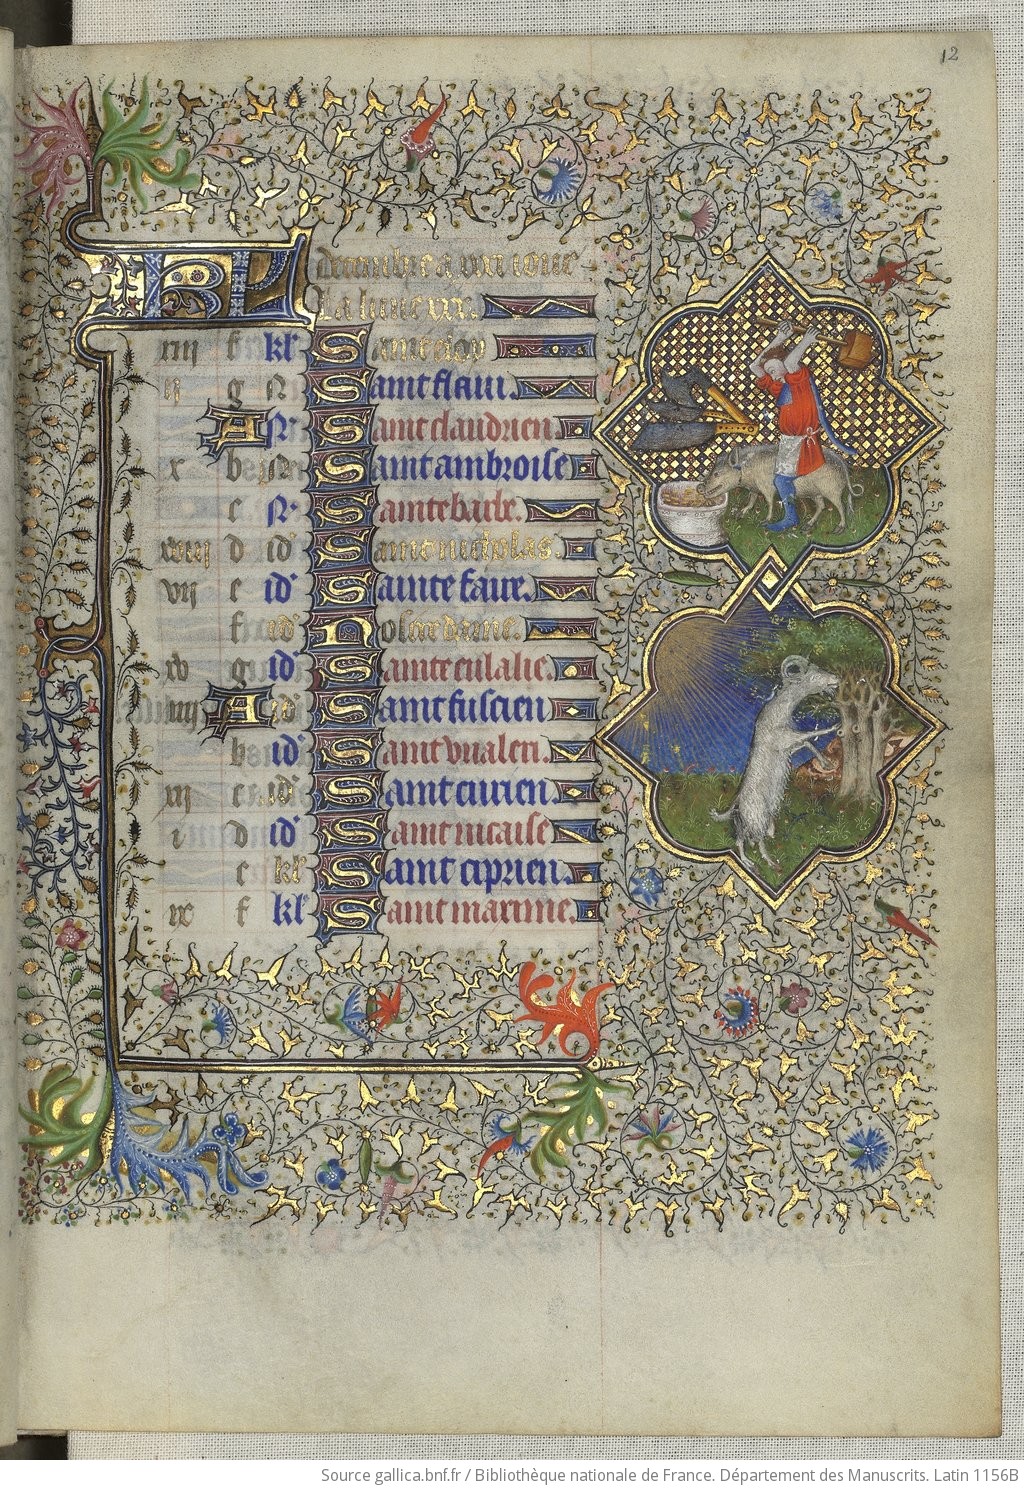 12
KL decembre a xxxi iour
La lune xxx.
xiii f kl' Saint eloy
ii g N Saint flaui.
A N' Saint claudien.
x b N' Saint ambroise
c N' Sainte barbe.
xviii d id' Saint nicholas.
vii e id' Sainte faire.
f id' Nostre dame.
xv g id' Sainte eulalie.
iiii A id' Saint fuscien
b id' Saint vualeri.
xii c id' Saint cuiien.
i d id' Saint nicaise
e kl' Saint ciprien.
ix f kl' Saint maxime.
Source gallica.bnf.fr / Bibliothèque nationale de France. Département des Manuscrits. Latin 1156B